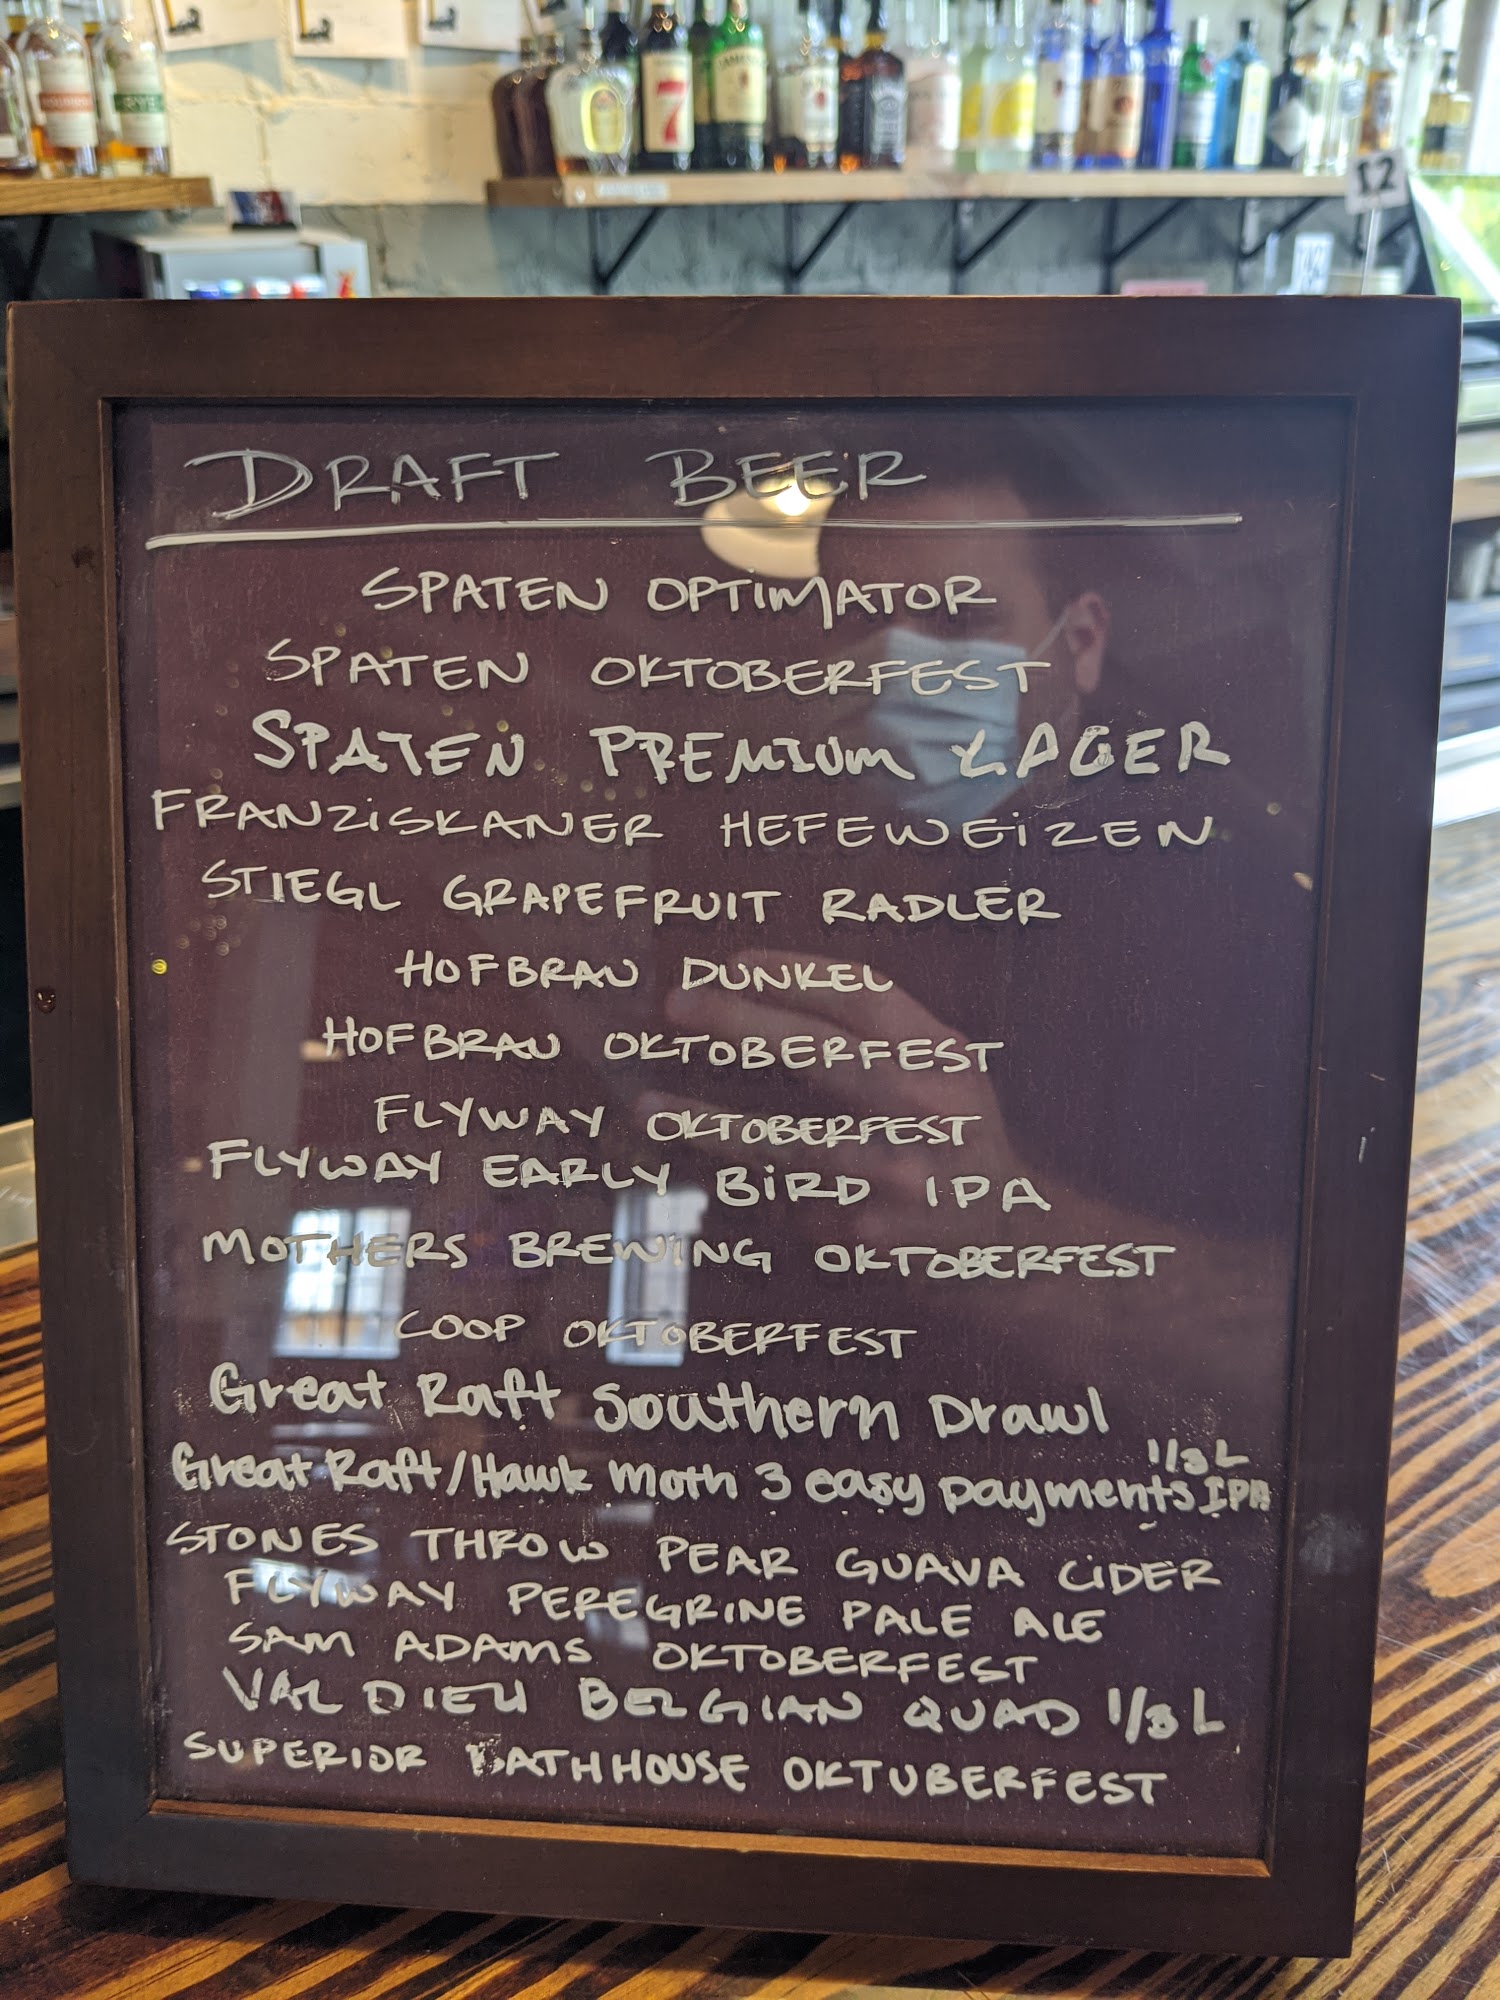 7
JAMESON
12
DRAFT BEER
SPATEN OPTIMATOR
SPATEN OKTOBERFEST
SPATEN PREMIUM LAGER
FRANZiSKANER HEFEWEiZEN
STIEGL GRAPEFRUIT RADLER
HOFBRAU DUNKEL
HOFBRAU OKTOBERFEST
FLYWAY OKTOBERFEST
FLYWAY EARLY BiRD IPA
MOTHERS BREWING OKTOBERFEST
COOP OKTOBERFEST
Great Raft Southern Drawl
1/3 L
Great Raft/Hawk Moth 3 easy payments IPA
STONES THROW PEAR GUAVA CiDER
FLYWAY PEREGRINE PALE ALE
SAM ADAMS OKTOBERFEST
VAL DIEU BELGIAN QUAD 1/3 L
SUPERIOR BATHHOUSE OKTUBERFEST